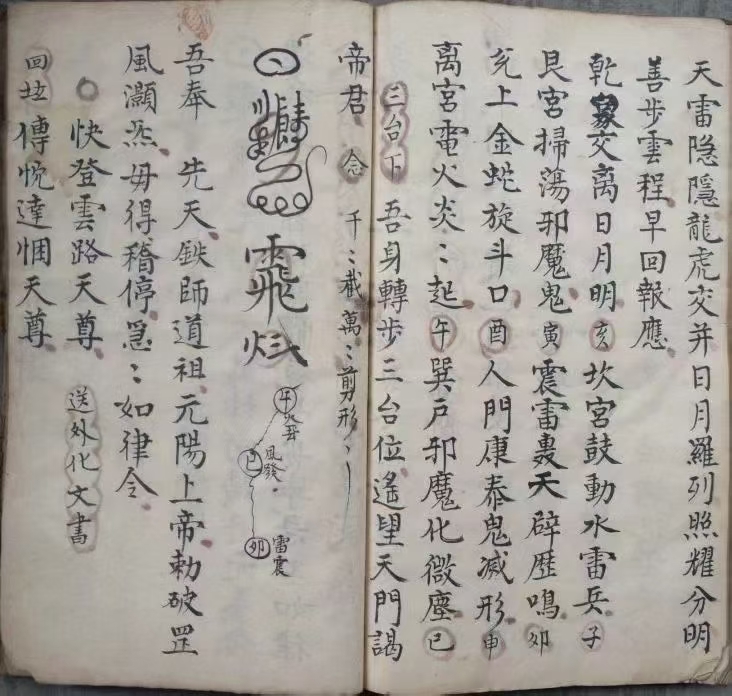 天雷隐隱龍虎交并日月羅列照耀分明
善步雲程早回報應
乾交離日月明亥坎宮鼓動水雷兵子
艮宮掃蕩邪魔鬼寅震雷轟天辟歷鳴卯
兌上金蛇旋斗口酉人門康泰鬼滅形申
离宮電火炎〻起午巽户邪魔化微塵巳
三台下吾身轉步三台位遙望天門謁
帝君念千〻截萬〻剪形〻
霛
午
巳風發
卯雷震
吾奉先天鉄師道祖元陽上帝勅破罡
風灝炁毋得稽停急〻如律令
快登雲路天尊送外化文書
回壇傳忱達悃天尊